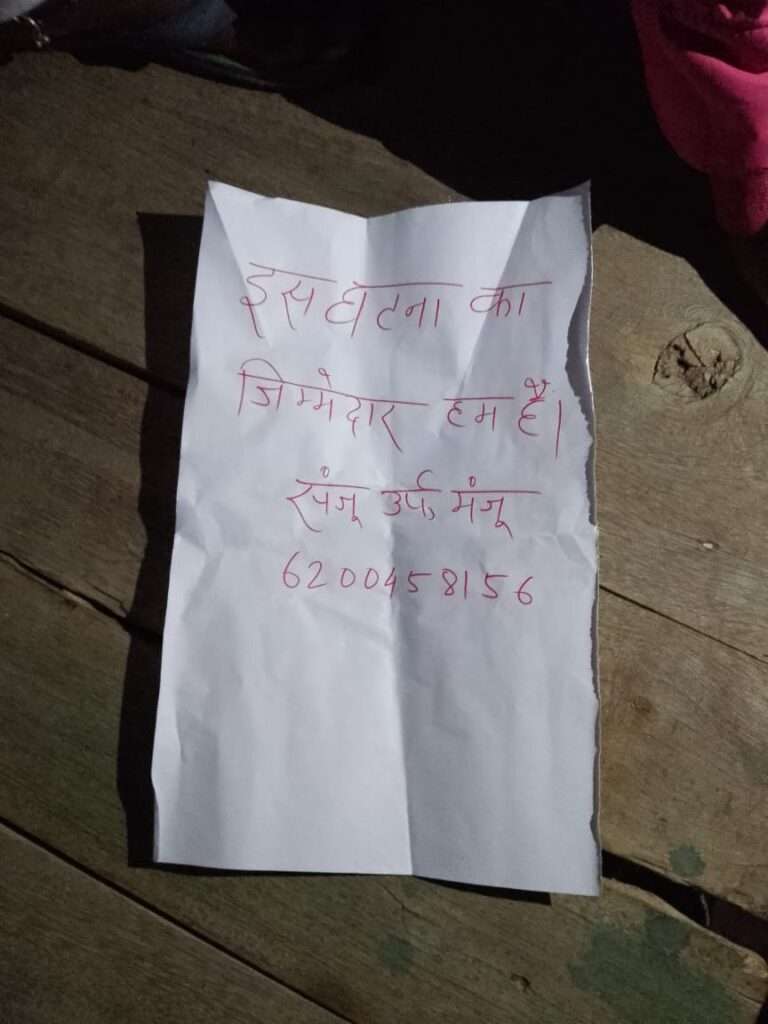 इस घटना का
जिम्मेदार हम हैं।
संजू उर्फ मंजू
6200458156